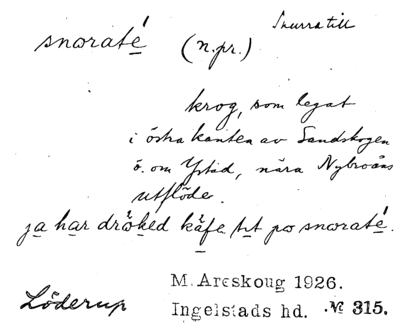 Snurratill
snoraté (n.pr.)
krog, som legat
i östra kanten av Sandskogen
ö. om Ystad, nära Nybroåns
utflöde.
ja har dröked kåfe tit po snoraté.
M. Areskoug 1926.
Löderup Ingelstads hd. № 315.